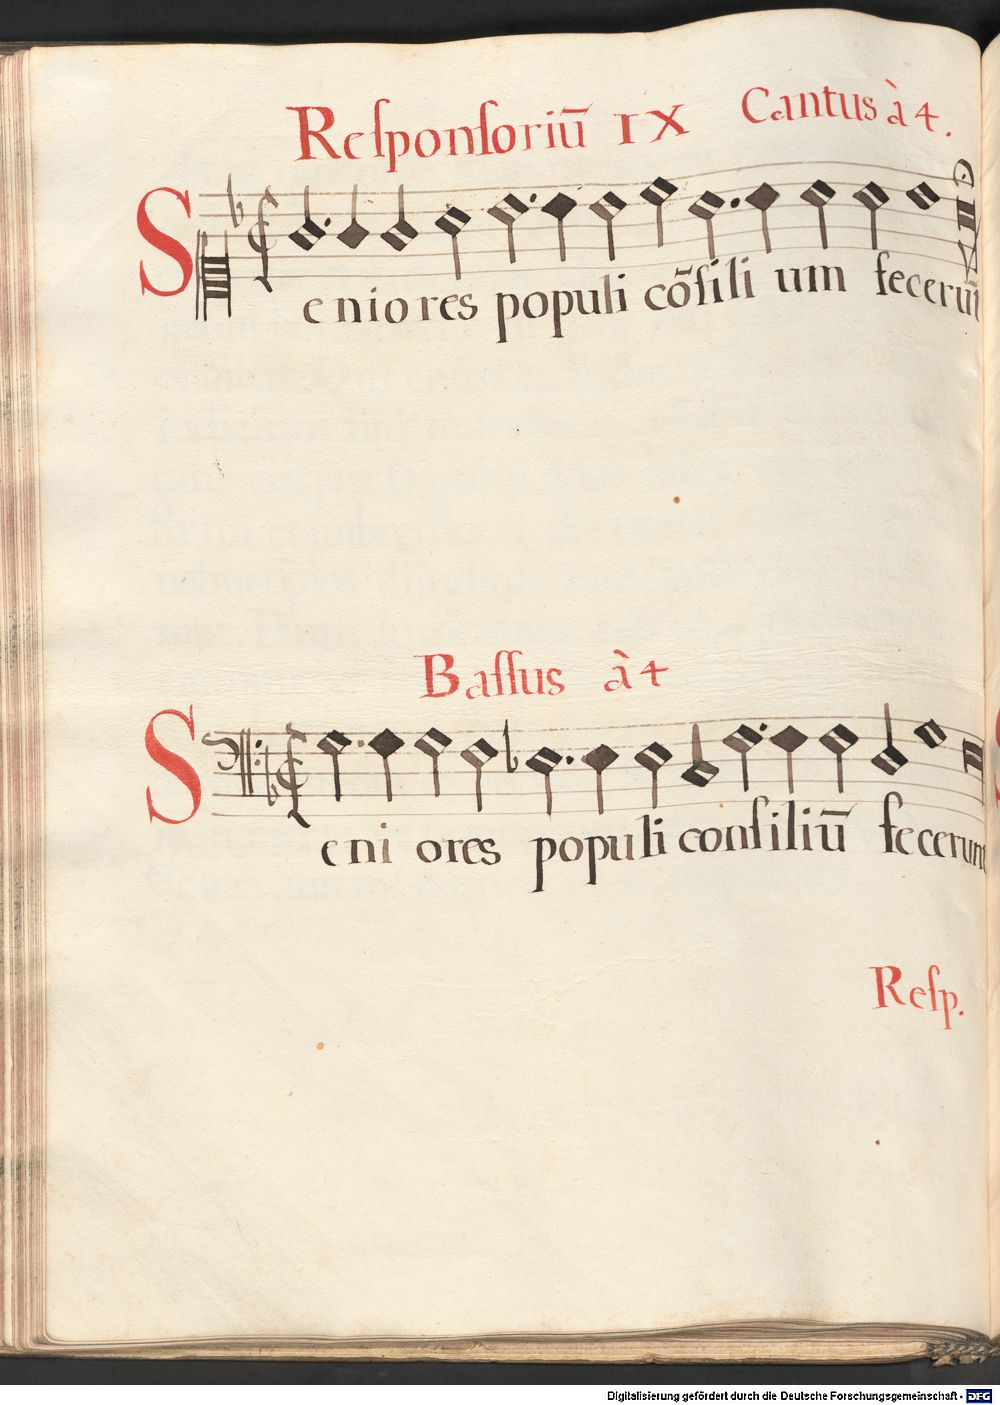 Reſponſoriũ IX Cantus à 4.
Seniores populi cõſilium fecerũt
Baſſus à 4
Seniores populi conſiliũ fecerunt
Reſp.
Digitalisierung gefördert durch die Deutsche Forschungsgemeinschaft - DFG